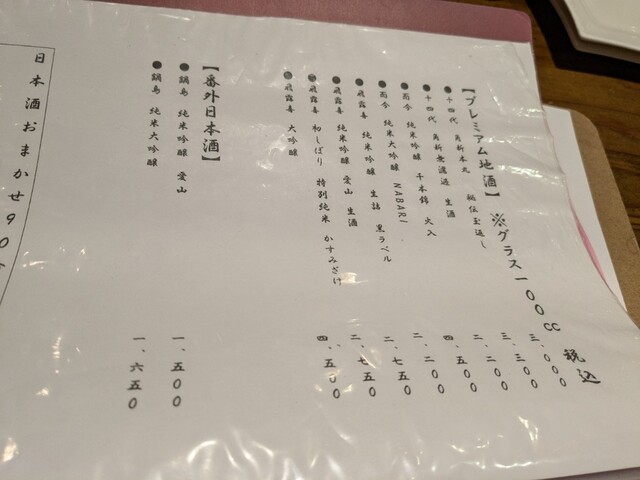 【プレミアム地酒】 ※グラス一00cc 税込
●十四代 角新本丸 秘伝玉返し 三、000
●十四代 角新無濾過 生酒 三、三00
●而今 純米吟醸 千本錦 火入 二、二00
●而今 純米大吟醸 NABARI 四、五00
●飛露喜 純米吟醸 生詰 黒ラベル 二、二00
●飛露喜 純米吟醸 愛山 生酒 二、七五0
●飛露喜 初しぼり 特別純米 かすみざけ 二、七五0
●飛露喜 大吟醸 四、五00
【番外日本酒】
●鍋島 純米吟醸 愛山 一、五00
●鍋島 純米大吟醸 一、六五0
日本酒おまかせ90